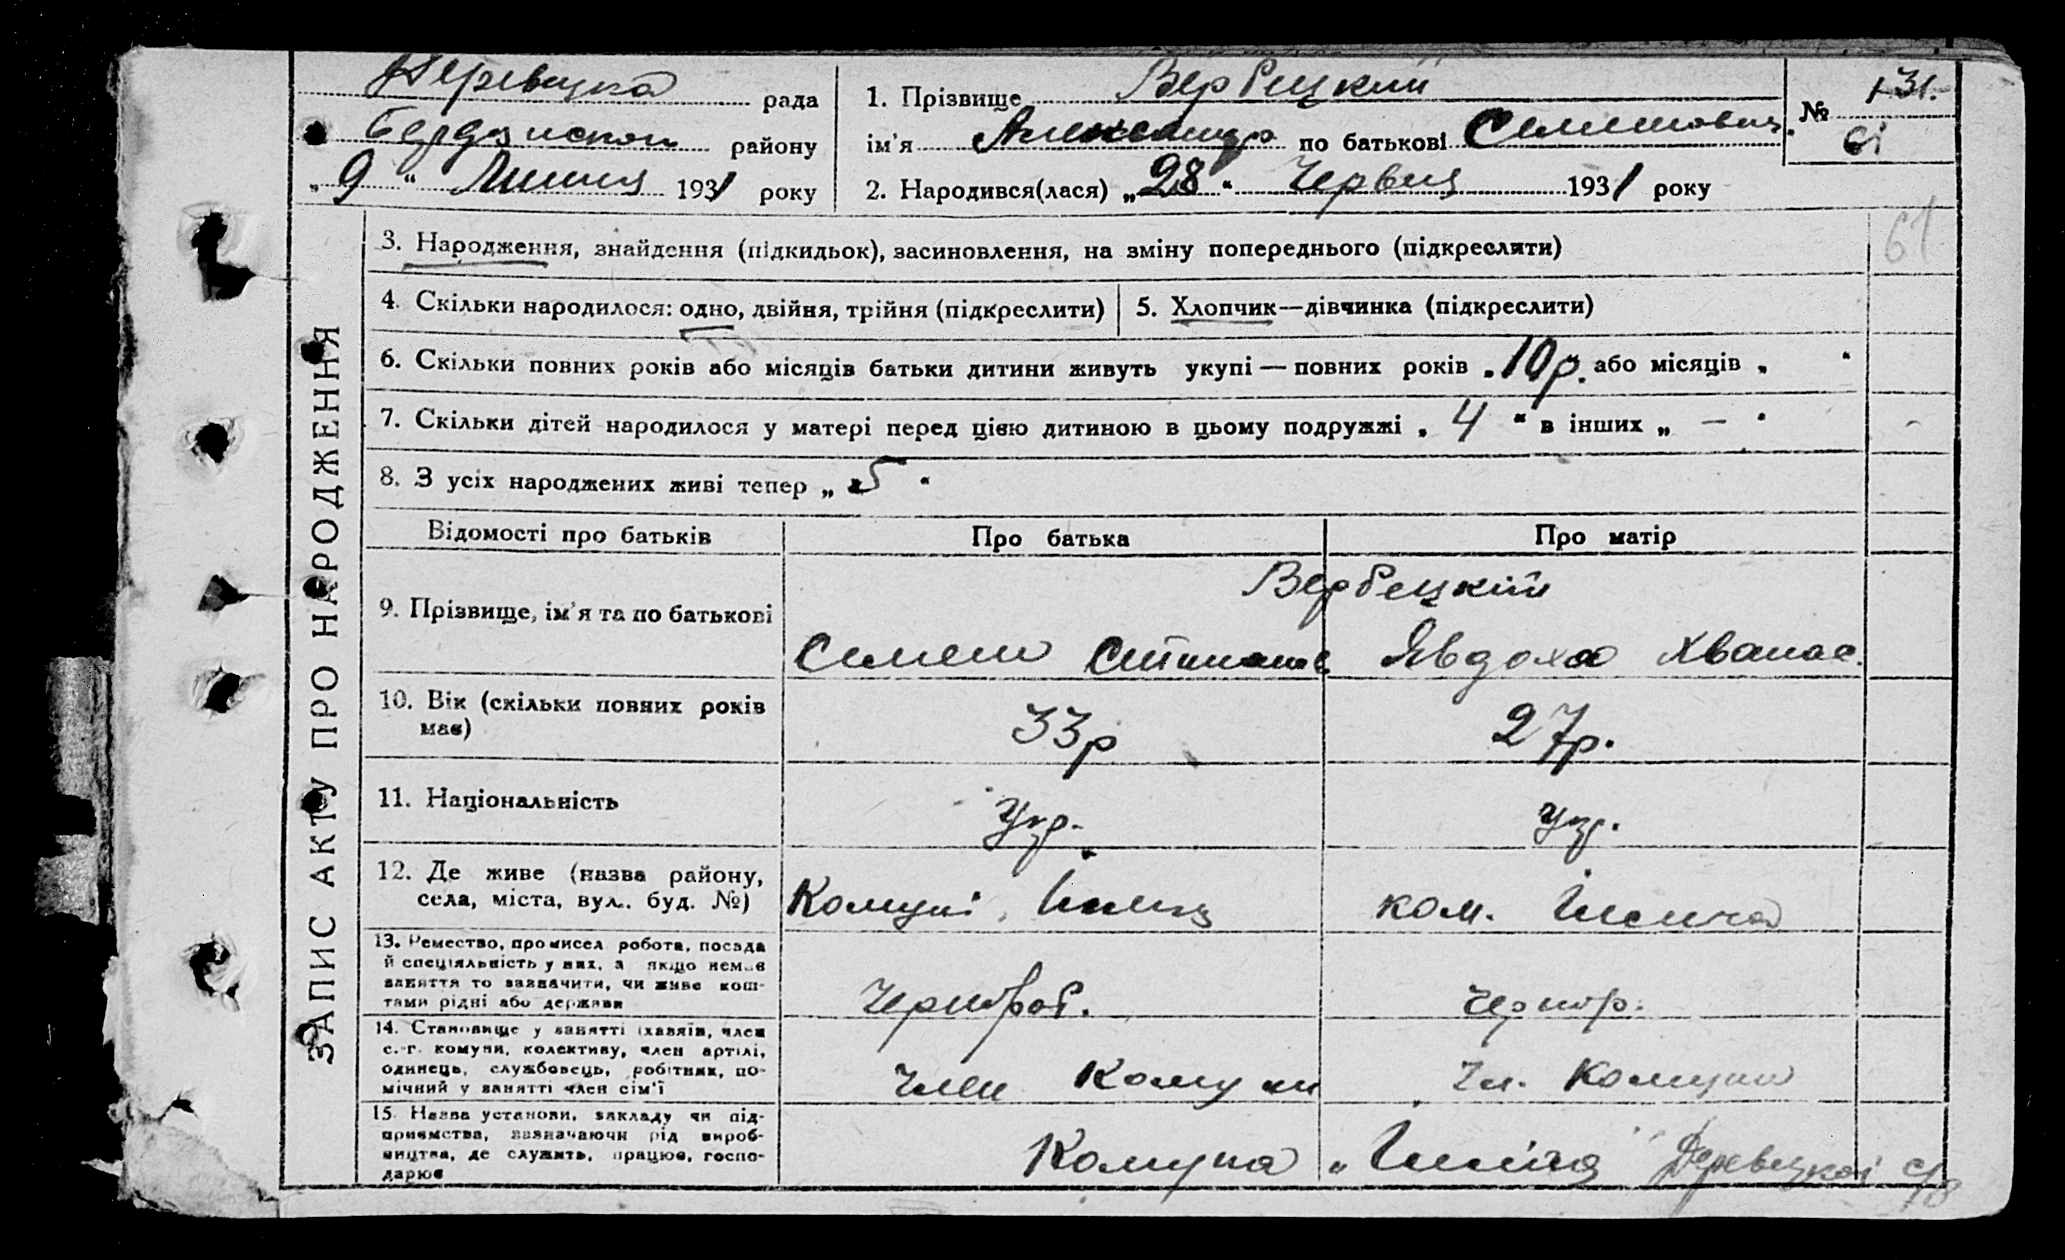 Деревицка рада
район у
„ 9 “ Липця 1931 року
1. Прізвище Вербецкий
ім'я Александр по батькові Семенович
2. Народився(лася) „ 28 “ Червця 1931 року
№ 131.
61
61
ЗАПИС АКТУ ПРО НАРОДЖЕННЯ
3. Народження, знайдення (підкидьок), засиновлення, на зміну попереднього (підкреслити)
4. Скільки народилося: одно, двійня, трійня (підкреслити)
5. Хлопчик—дівчинка (підкреслити)
6. Скільки повних років або місяців батьки дитини живуть укупі — повних років „ 10 р. або місяців „ “
7. Скільки дітей народилося у матері перед цією дитиною в цьому подружжі „ 4 “ в інших „ — “
8. З усіх народжених живі тепер „ 5 “
Відомості про батьків Про батька Про матір
9. Прізвище, ім'я та по батькові
Вербецкій
Семен Степанов Явдоха Хванас.
10. Вік (скільки повних років
має)
33р 27р.
11. Національність
Укр. Укр.
12. Де живе (назва району,
села, міста, вул. буд. №)
Комуні Ілліча ком. Ілліча
13. Ремество, промисел робота, посада
й спеціяльність у них, а якщо немає
заняття то зазначити, чи живе кош-
тами рідні або держави
Чернороб. Чернор.
14. Становище у занятті (хазяїн, член
с.-г. комуни, колективу, член артілі,
одинець, службовець, робітник, по-
мічний у занятті член сім'ї
Член Комуни Чл. Комуни
15. Назва установи, закладу чи під-
приємства, зазначаючи рід вироб-
ництва, де служить, працює, госпо-
дарює
Комуна „ Ілліча Деревецкоі с/р